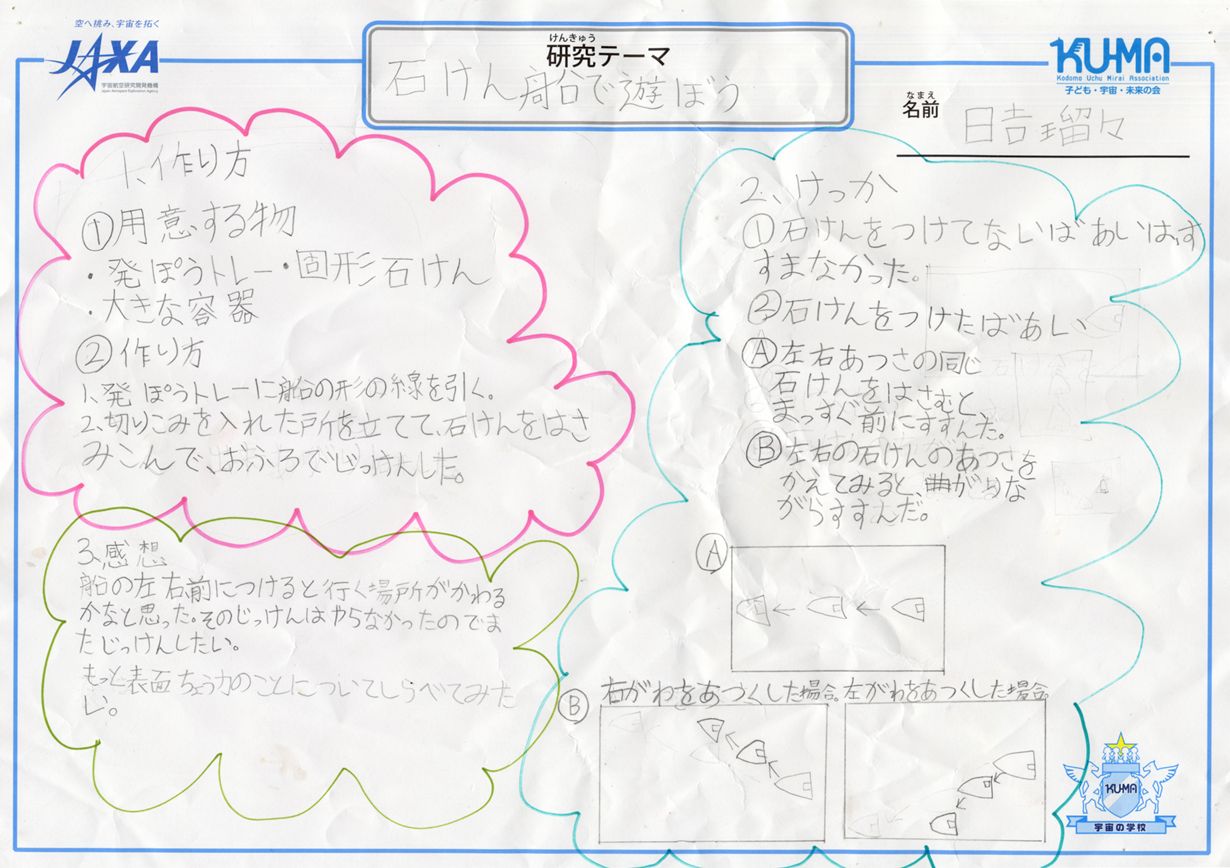 空へ挑み、宇宙を拓く
JAXA
宇宙航空研究開発機構
Japan Aerospace Exploration Agency
けんきゅう
研究テーマ
石けん船で遊ぼう
KU-MA
Kodomo Uchu Mirai Association
子ども・宇宙・未来の会
なまえ
名前
日吉瑠々
1、作り方
①用意する物
・発ぽうトレー・固形石けん
・大きな容器
②作り方
1、発ぽうトレーに船の形の線を引く。
2、切りこみを入れた戸所を立てて、石けんをはさ
みこんで、おふろでじっけんした。
2、けっか
①石けんをつけてないばあいは、す
すまなかった。
②石けんをつけたばあい
Ⓐ左右あつさの同じ
石けんをはさむと、
まっすぐ前にすすんだ。
Ⓑ左右の石けんのあつさを
かえてみると、曲がりな
がらすすんだ。
Ⓐ
Ⓑ
右がわをあつくした場合。左がわをあつくした場合。
3、感想
船の左右前につけると行く場所がかわる
かなと思った。そのじっけんはやらなかったのでま
たじっけんしたい。
もっと表面ちょう力のことについてしらべてみた
い。
KU-MA
宇宙の学校